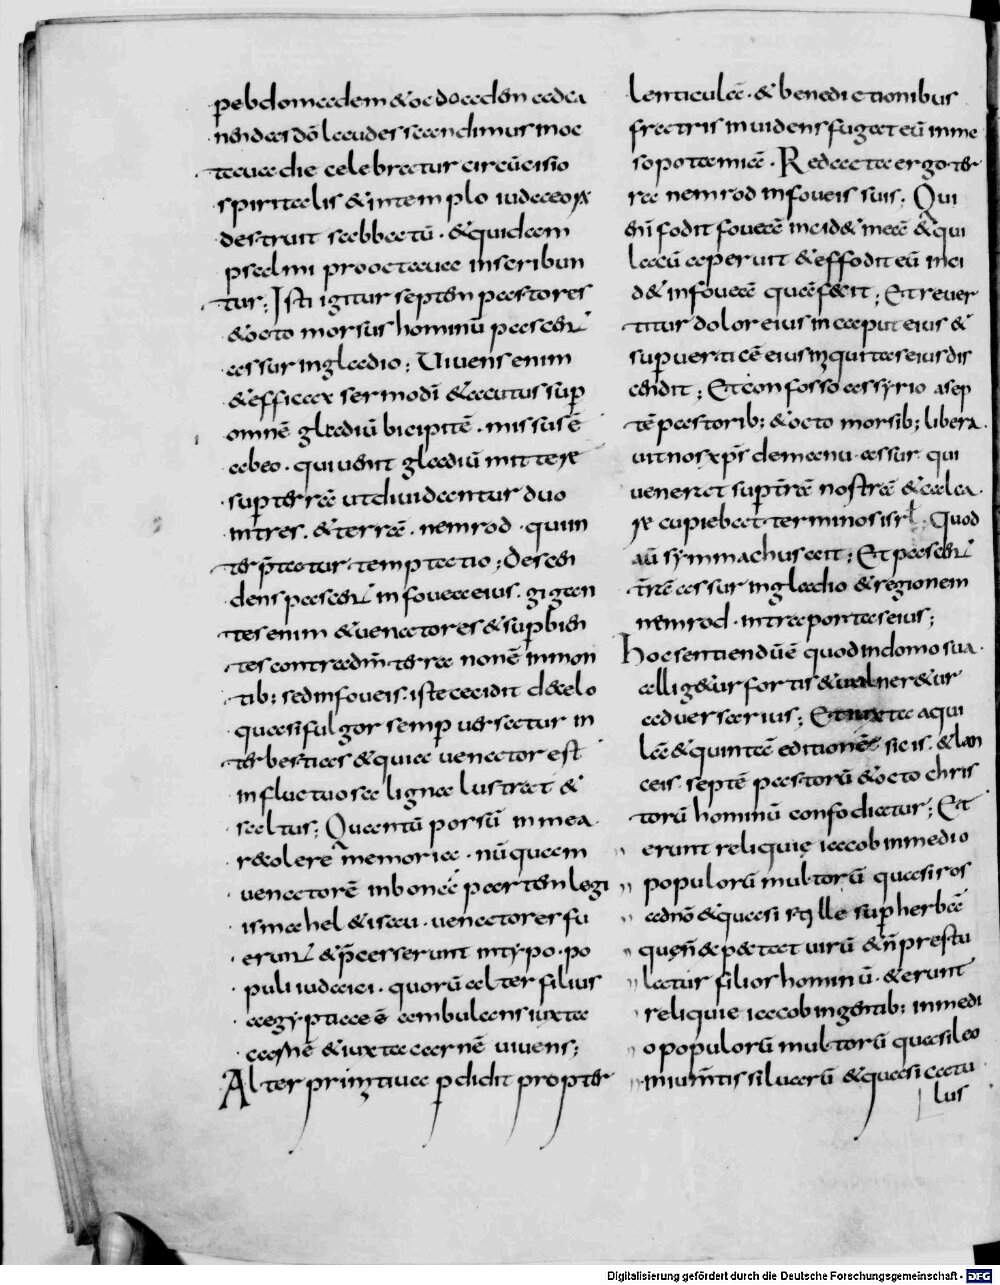 pebdomadem & ocdoaden adca
nendas dō laudes scandimus in oc
taua die celebratur circūcisio
spiritalis & in templo iudaeorꝝ
destruit sabbatū · & quidam
psalmi pro octaua inscribun
tur; Isti igitur septen pastores
& octo morsus hominū pascent
assur in gladio; Viuens enim
& efficax sermo dī & acutus sup
omnē gladiū bicipitē · missus ē
ab eo · qui uenit gladiū mittere
sup terrā ut diuidantur duo
in tres · & terrā · nemrod · qui in
terp̄tatur temptatio; Descen
dens pascent in fouea eius · gigan
tes enim & uenatores & supbien
tes contra dm̄ terra non ē in mon
tib; sed in foueis · iste cecidit de caelo
quasi fulgor semp uersatur in
ter bestias & quia uenator est
in fluctuosa ligna lustrat &
saltus; Quantū porsū in mea
r&olere memoria · nūquam
uenatorē in bonā partem legi
ismahel & isau · uenatores fu
erunt & p̄cesserunt in typo · po
puli iudaici · quorū alter filius
aegyptiacē ē ambulans iuxta
carnē & iuxta carnē uiuens;
Alter primitiua pdidit propter
lenticulā · & benedictionibus
fratris inuidens fugat eū in me
sopotamiā · Redacta ergo ter
ra nemrod in foueis suis; Qui
eni fodit foueā incid& in eā & qui
lacū aperuit & effodit eū inci
d& in foueā quā fecit; Et reuer
titur dolor eius in caput eius &
sup uerticē eius iniquitas eius dis
cendit; Et confosso assyrio a sep
tē pastorib; & octo morsib; libera
uit nos xp̄s de manu assur qui
uenerat sup trā nostrā & calca
re cupiebat terminos isrl · Quod
aū symmachus ait; Et pascent
trā assur in gladio & regionem
nemrod · intra portas eius;
Hoc sentiendū ē quod in domo sua
allig&ur fortis & uulner&ur
aduersarius; Et iuxta aqui
lā & quintā editionē siciis · & lan
ceis septē pastorū & octo chris
torū hominū confodiatur; Et
erunt reliquię iacob in medio
populorū multorū quasi ros
a dnō & quasi stille sup herbā
quen̄ expectat uirū & n̄ presto
latur filios hominū · & erunt
reliquie iacob in gentib; in medi
o populorū multorū quasi leo
in iumentis siluarū & quasi catu
lus
Digitalisierung gefördert durch die Deutsche Forschungsgemeinschaft - DFG